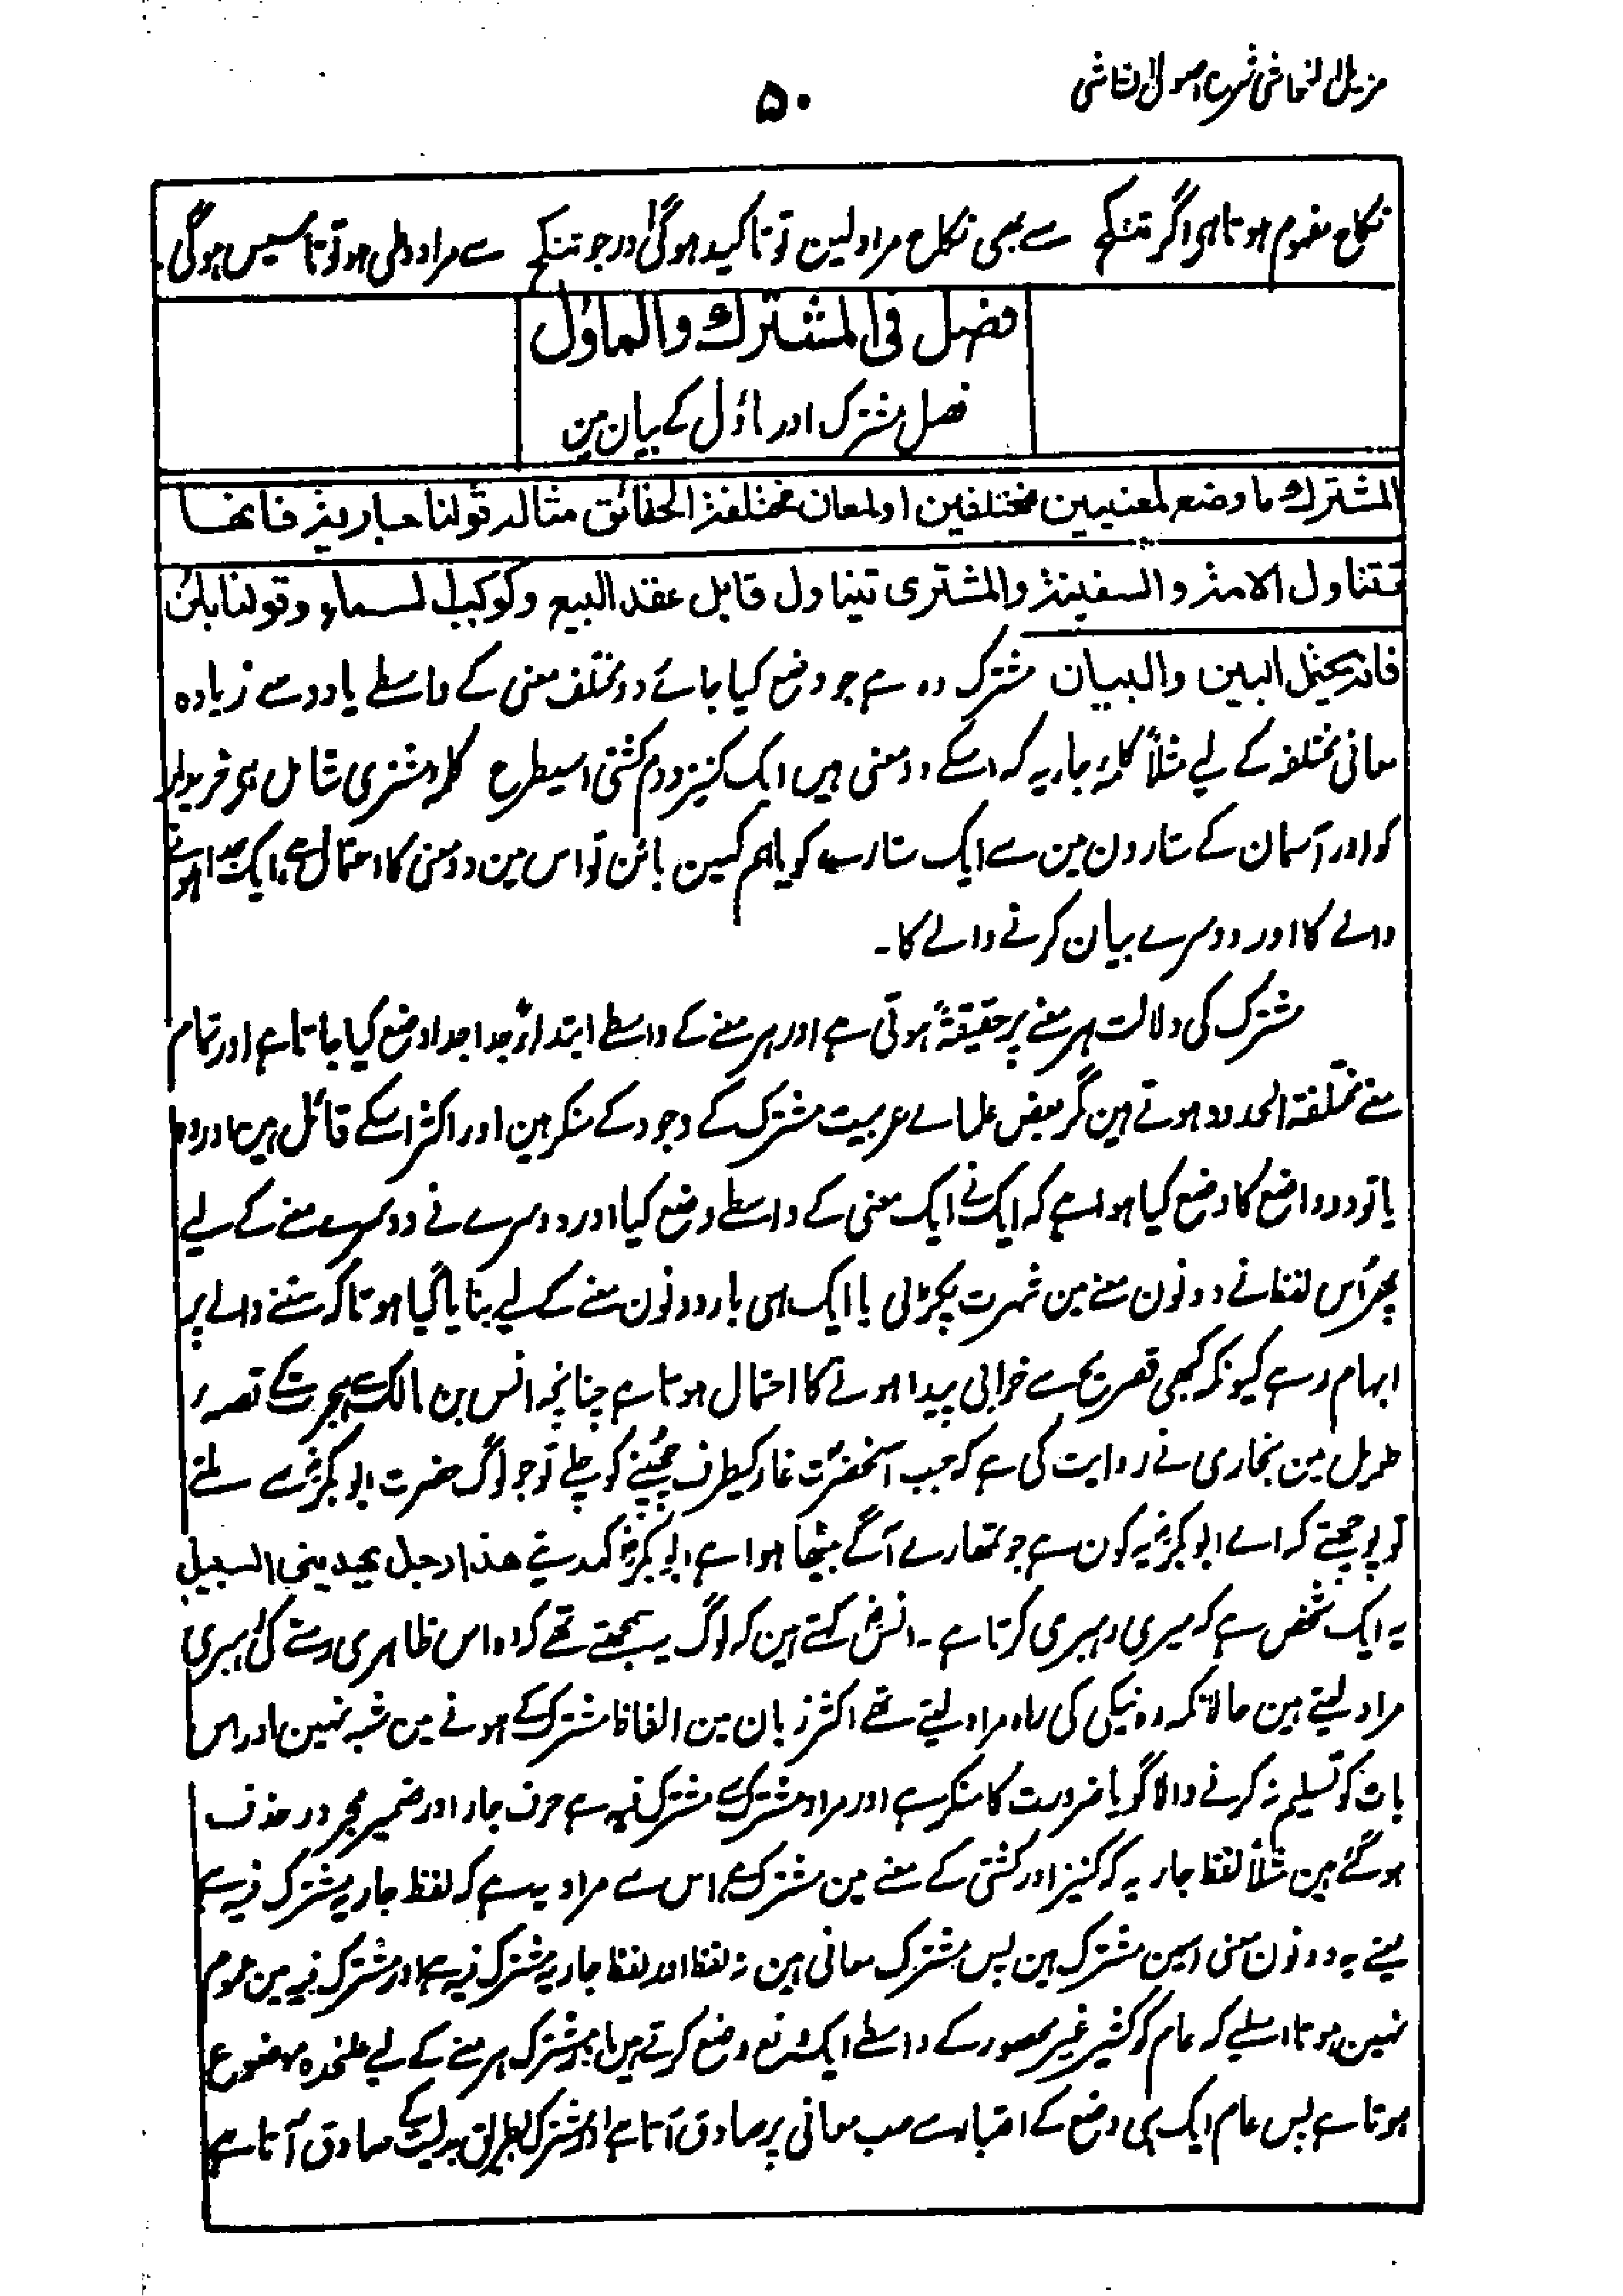 مزیل الغواشی شرح اصول الشاشی
۵۰
نکاح مفہوم ہوتا ہی اگر تنکح سے بھی نکاح مراد لین تو تاکید ہوگی اور جو تنکح سے مراد وطی ہو تو تاسیس ہوگی۔
فصل فی المشترك والماؤل
فصل مشترک اور ماؤل کے بیان مین
المشترك ما وضع لمعنیین مختلفین او لمعان مختلفة الحقائق مثاله قولنا جاریة فانها
تتناول الامة والسفینة والمشتری یتناول قابل عقد البیع وکوکب السماء وقولنا بائن
فانه یحتمل البین والبیان مشترک وہ ہے جو وضع کیا جائے دو مختلف معنی کے واسطے یا دو سے زیادہ
معانی مختلفہ کے لیے مثلاً کلمۂ جاریہ کہ اسکے دو معنی ہیں ایک کنیز دوم کشتی اسیطرح کلمہ مشتری شامل ہی خریدار
کو اور آسمان کے ستارون مین سے ایک ستارے کو یا ہم کہین بائن تو اس مین دو معنی کا احتمال ہے ایک جدا ہونے
والے کا اور دوسرے بیان کرنے والے کا۔
مشترک کی دلالت ہر معنے پر حقیقۃً ہوتی ہے اور ہر معنے کے واسطے ابتداءً جدا جدا وضع کیا جاتا ہے اور تمام
معنے مختلفۃ الحدود ہوتے ہین مگر بعض علمائے عربیت مشترک کے وجود کے منکر ہین اور اکثر اسکے قائل ہین اور وہ
یا تو دو واضع کا وضع کیا ہوا ہے کہ ایک نے ایک معنی کے واسطے وضع کیا اور دوسرے نے دوسرے معنے کے لیے
پھر اُس لفظ نے دونون معنے مین شہرت پکڑ لی یا ایک ہی بار دونون معنے کے لیے بنایا گیا ہو تاکہ سننے والے پر
ابہام رہے کیونکہ کبھی تصریح سے خرابی پیدا ہونے کا احتمال ہوتا ہے چنانچہ انس بن مالک سے ہجرت کے قصہ
طویل مین بخاری نے روایت کی ہے کہ جب آنحضرت غار کیطرف چھپنے کو چلے تو جو لوگ حضرت ابو بکرؓ سے ملتے
تو پوچھتے کہ اے ابو بکرؓ یہ کون ہے جو تمھارے آگے بیٹھا ہوا ہے ابو بکرؓ کہدیتے هذا رجل یهدینی السبیل
یہ ایک شخص ہے کہ میری رہبری کرتا ہے۔ انسؓ کہتے ہین کہ لوگ یہ سمجھتے تھے کہ وہ اس ظاہری رستے کی رہبری
مراد لیتے ہین حالانکہ وہ نیکی کی راہ مراد لیتے تھے اکثر زبان مین الفاظ مشترک کے ہونے مین شبہ نہین اور اس
بات کو تسلیم نہ کرنے والا گویا ضرورت کا منکر ہے اور مراد مشترک سے مشترک فیہ ہے حرف جار اور ضمیر مجرور حذف
ہو گئے ہین مثلاً لفظ جاریہ کہ کنیز اور کشتی کے معنے مین مشترک ہے اس سے مراد یہ ہے کہ لفظ جاریہ مشترک فیہ ہے
یعنے یہ دونون معنی اسمین مشترک ہین پس مشترک معانی ہین نہ لفظ اور لفظ جاریہ مشترک فیہ ہے اور مشترک فیہ مین عموم
نہین ہوتا اسلیے کہ عام کو کثیر غیر محصور کے واسطے ایک وضع کرتے ہین اور مشترک ہر معنے کے لیے علٰحدہ موضوع
ہوتا ہے پس عام ایک ہی وضع کے اعتبار سے سب معانی پر صادق آتا ہے اور مشترک بطریق بدلیت کے صادق آتا ہے